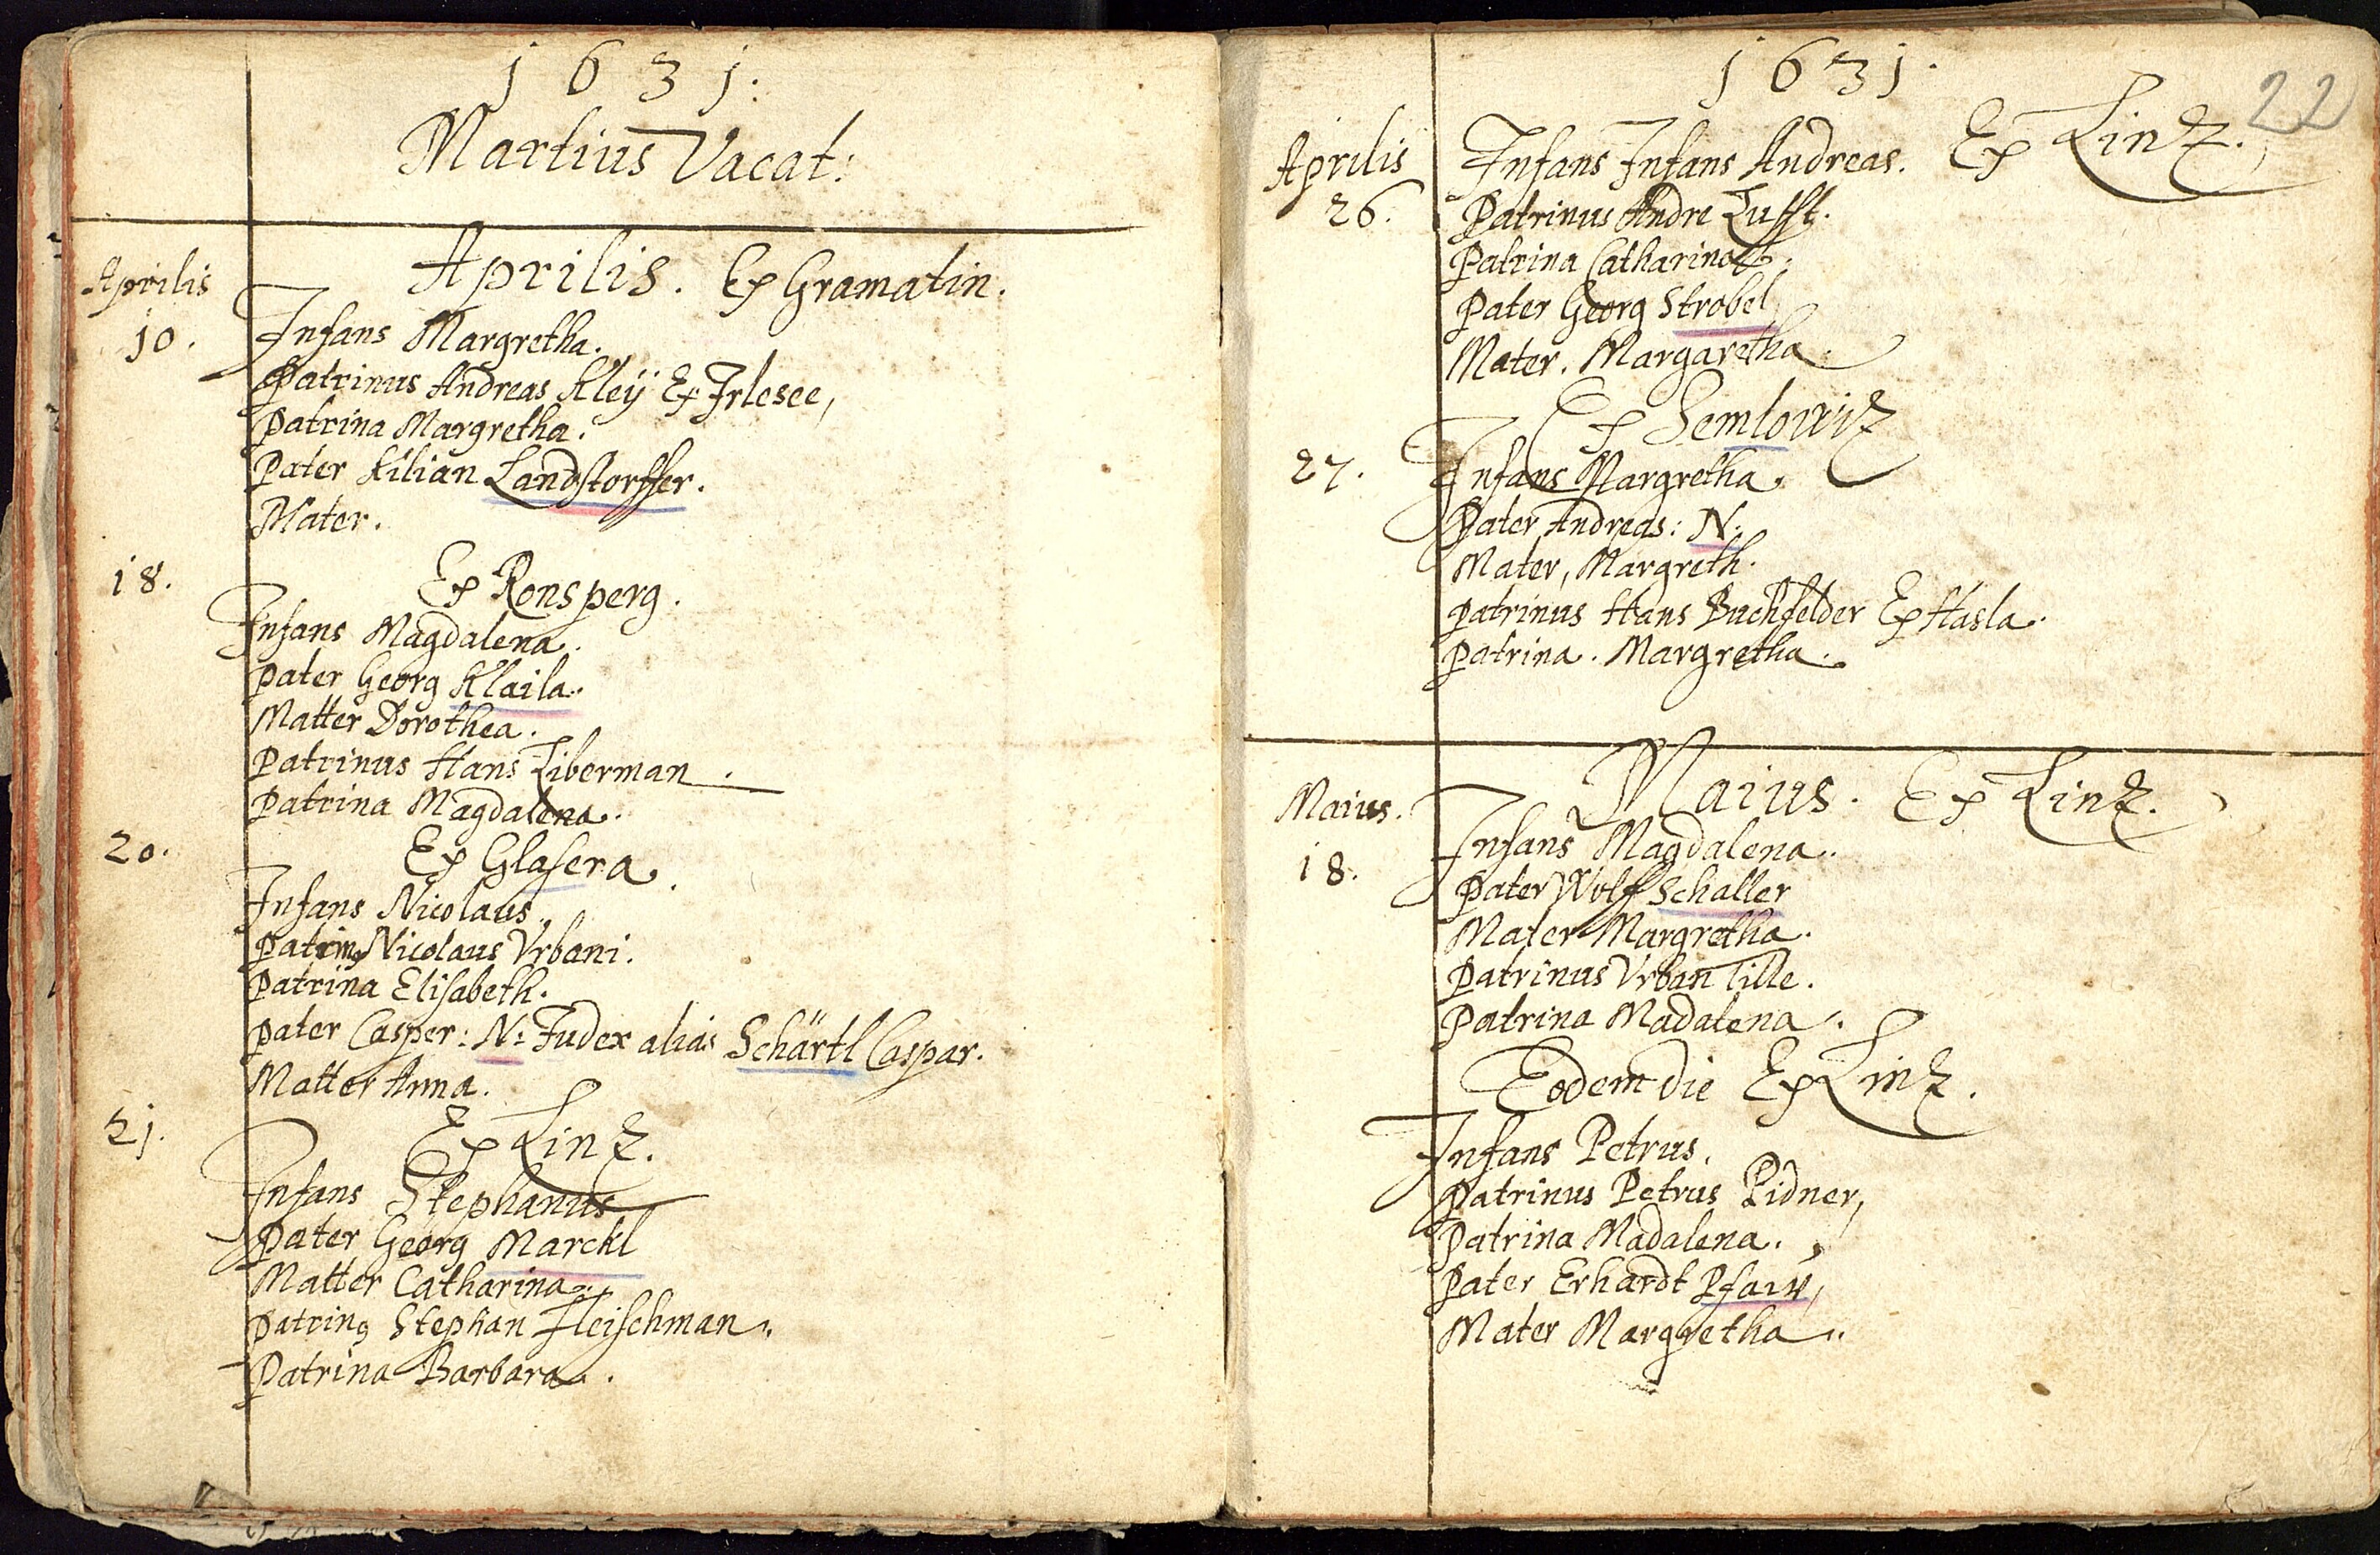 1631:
Martius Vacat:
Aprilis. Ex Gramatin.
Aprilis
10.
Infans Margretha.
Patrinus Andreas Kleÿ Ex Irlesee,
Patrina Margretha.
Pater Kilian Landstorffer.
Mater.
18.
Ex Ronsperg.
Infans Magdalena.
Pater Georg Klaila.
Matter Dorothea.
Patrinus Hans Liberman.
Patrina Magdalena.
20.
Ex Glasera.
Infans Nicolaus.
Patrinus Nicolaus Vrbani.
Patrina Elisabeth.
Pater Casper: N: Judex alias Schärtl Caspar.
Matter Anna.
21.
Ex Linz.
Infans Stephanus
Pater Georg Marckl
Matter Catharina.
Patrinus Stephan Fleischman.
Patrina Barbara.
22
1631.
Aprilis
26.
Infans Infans Andreas. Ex Linz.
Patrinus Andre Lufft.
Patrina Catharina.
Pater Georg Strobel
Mater. Margaretha.
Ex Semlowiz
27.
Infans Margretha.
Pater Andreas: N.
Mater, Margreth.
Patrinus Hans Buchfelder Ex Hasla.
Patrina. Margretha.
Maius. Ex Linz.
Maius.
18.
Infans Magdalena.
Pater Wolf Schaller
Mater Margretha.
Patrinus Vrban Tille.
Patrina Madalena.
Eodem die Ex Linz.
Infans Petrus.
Patrinus Petrus Pidner,
Patrina Madalena.
Pater Erhardt Pfaiw,
Mater Margretha.